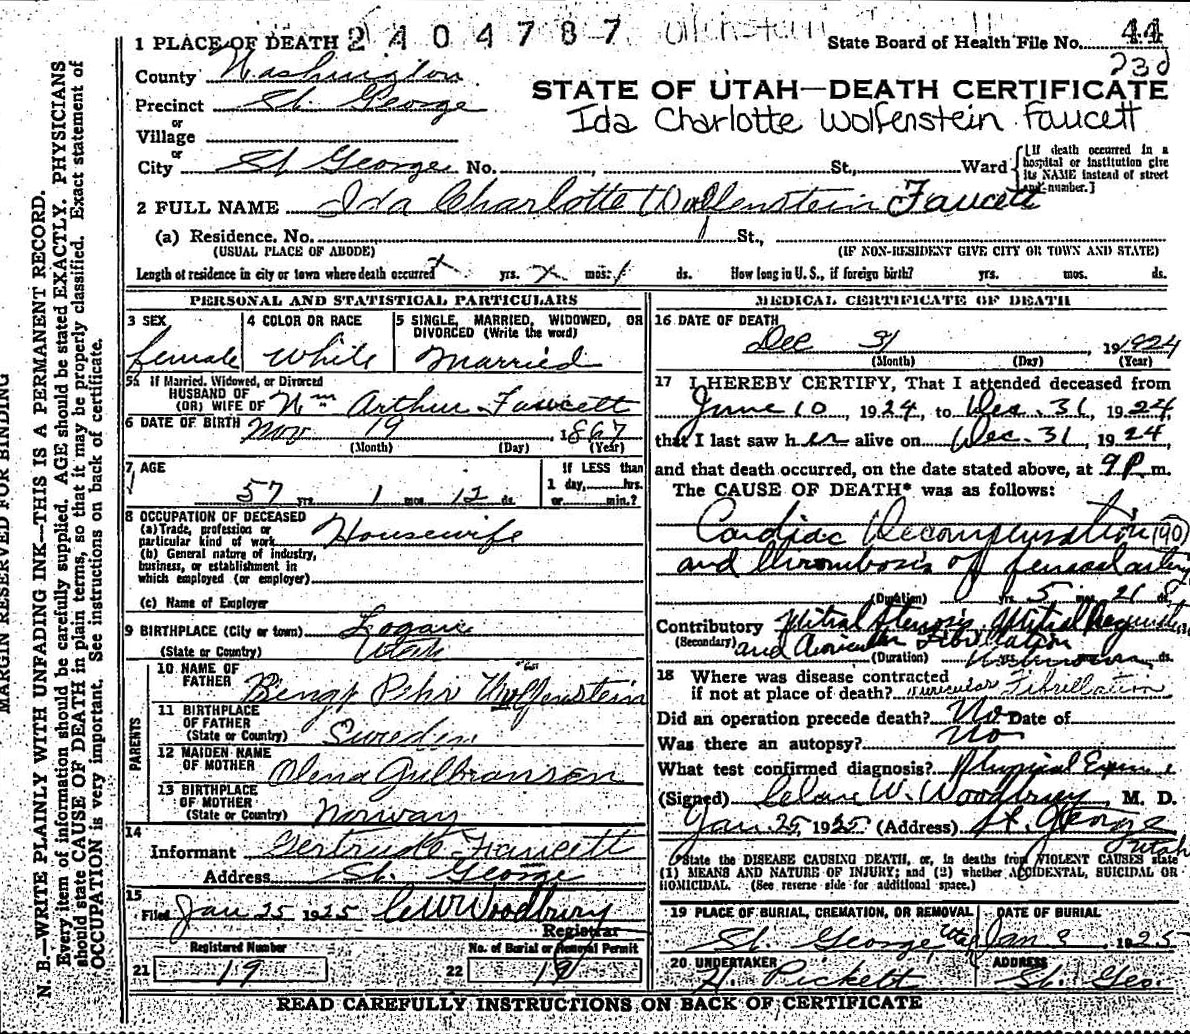 1 PLACE OF DEATH 2404787
State Board of Health File No. 44
County Washington
230
Precinct St. George
STATE OF UTAH—DEATH CERTIFICATE
or
Village
Ida Charlotte Wolfenstein Faucett
or
City St George No. St., Ward
[If death occurred in a hospital or institution give its NAME instead of street and number.]
2 FULL NAME Ida Charlotte Wolfenstein Faucett
(a) Residence. No. St.,
(USUAL PLACE OF ABODE) (IF NON-RESIDENT GIVE CITY OR TOWN AND STATE)
Length of residence in city or town where death occurred yrs. mos. ds. How long in U. S., if foreign birth? yrs. mos. ds.
PERSONAL AND STATISTICAL PARTICULARS
3 SEX
female
4 COLOR OR RACE
White
5 SINGLE, MARRIED, WIDOWED, OR
DIVORCED (Write the word)
Married
5a If Married, Widowed, or Divorced
HUSBAND OF
(OR) WIFE OF Wm Arthur Fawcett
6 DATE OF BIRTH Nov 19, 1867
(Month) (Day) (Year)
7 AGE
57 yrs. 1 mos. 12 ds.
If LESS than
1 day, hrs.
or min.?
8 OCCUPATION OF DECEASED
(a) Trade, profession or
particular kind of work Housewife
(b) General nature of industry,
business, or establishment in
which employed (or employer)
(c) Name of Employer
9 BIRTHPLACE (City or town) Logan
(State or Country) Utah
PARENTS
10 NAME OF
FATHER Bengt Pehr Wolfenstein
11 BIRTHPLACE
OF FATHER
(State or Country) Sweden
12 MAIDEN NAME
OF MOTHER Olena Gulbransen
13 BIRTHPLACE
OF MOTHER
(State or Country) Norway
14
Informant Gertrude Fawcett
Address St. George
15
Filed Jan 25 1925 C W Woodbury
Registrar
Registered Number No. of Burial or Removal Permit
21 19 22 19
MEDICAL CERTIFICATE OF DEATH
16 DATE OF DEATH
Dec 31, 1924
(Month) (Day) (Year)
17 I HEREBY CERTIFY, That I attended deceased from
June 10, 1924, to Dec. 31, 1924,
that I last saw her alive on Dec. 31, 1924,
and that death occurred, on the date stated above, at 9 P m.
The CAUSE OF DEATH* was as follows:
Cardiac Decompensation (90)
and thrombosis of femoral artery
(Duration) yrs. 5 mos. 21 ds.
Contributory Mitral Stenosis, Mitral
(Secondary) and Auricular Fibrillation
(Duration) Unknown ds.
18 Where was disease contracted
if not at place of death? auricular Fibrillation
Did an operation precede death? No Date of
Was there an autopsy? No
What test confirmed diagnosis? Physical
(Signed) Clare W. Woodbury M. D.
Jan. 25, 1925 (Address) St. George
Utah
*State the DISEASE CAUSING DEATH, or, in deaths from VIOLENT CAUSES state
(1) MEANS AND NATURE OF INJURY; and (2) whether ACCIDENTAL, SUICIDAL OR
HOMICIDAL. (See reverse side for additional space.)
19 PLACE OF BURIAL, CREMATION, OR REMOVAL DATE OF BURIAL
St. George, Utah Jan 3, 1925
20 UNDERTAKER ADDRESS
H. Pickett St. Geo.
READ CAREFULLY INSTRUCTIONS ON BACK OF CERTIFICATE
MARGIN RESERVED FOR BINDING
N. B.—WRITE PLAINLY WITH UNFADING INK—THIS IS A PERMANENT RECORD.
Every item of information should be carefully supplied. AGE should be stated EXACTLY. PHYSICIANS
should state CAUSE OF DEATH in plain terms, so that it may be properly classified. Exact statement of
OCCUPATION is very important. See instructions on back of certificate.